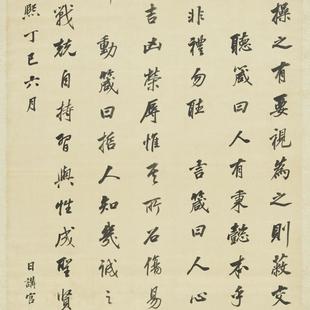 操之有要視為之則蔽交
聽箴曰人有秉懿本乎
非禮勿聽 言箴曰人心
吉凶榮辱惟其所召傷易
動箴曰哲人知幾誠之
戰兢自持習與性成聖賢
熙丁巳六月 日講官